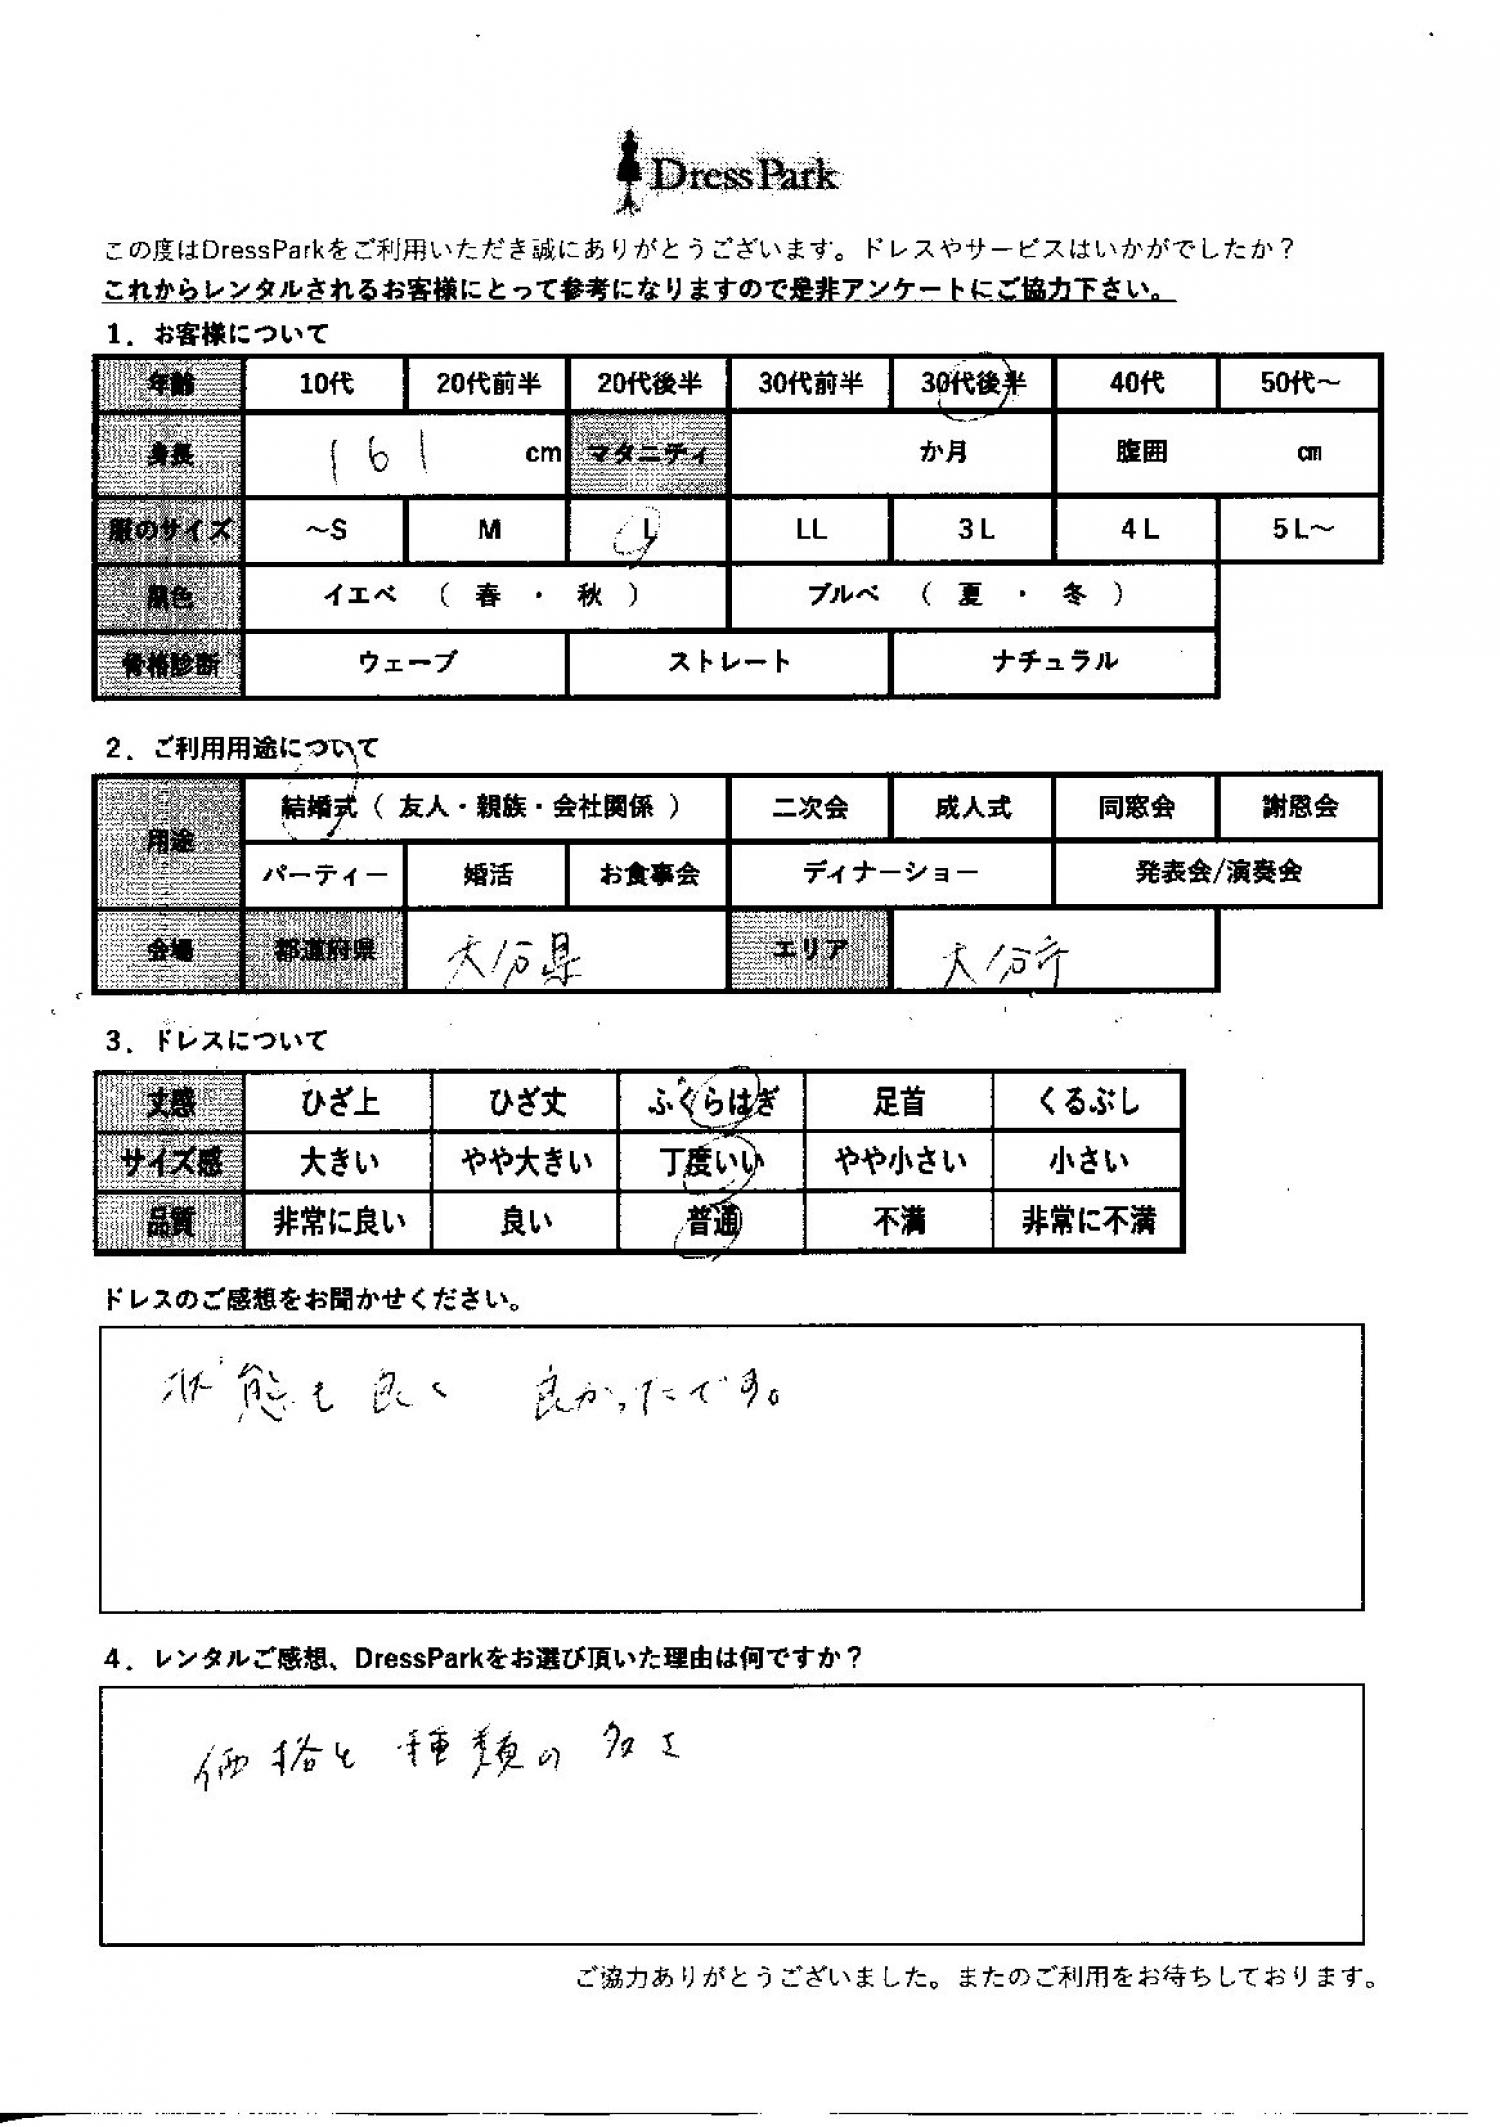 DressPark
この度はDressParkをご利用いただき誠にありがとうございます。ドレスやサービスはいかがでしたか？
これからレンタルされるお客様にとって参考になりますので是非アンケートにご協力下さい。
1．お客様について
年齢 10代 20代前半 20代後半 30代前半 30代後半 40代 50代～
身長 161 cm マタニティ か月 腹囲 cm
服のサイズ ～S M L LL 3L 4L 5L～
肌色 イエベ （ 春 ・ 秋 ） ブルベ （ 夏 ・ 冬 ）
骨格診断 ウェーブ ストレート ナチュラル
2．ご利用用途について
用途 結婚式（ 友人・親族・会社関係 ） 二次会 成人式 同窓会 謝恩会
パーティー 婚活 お食事会 ディナーショー 発表会/演奏会
会場 都道府県 大分県 エリア 大分市
3．ドレスについて
丈感 ひざ上 ひざ丈 ふくらはぎ 足首 くるぶし
サイズ感 大きい やや大きい 丁度いい やや小さい 小さい
品質 非常に良い 良い 普通 不満 非常に不満
ドレスのご感想をお聞かせください。
状態も良く 良かったです。
4．レンタルご感想、DressParkをお選び頂いた理由は何ですか？
価格と 種類の 多さ
ご協力ありがとうございました。またのご利用をお待ちしております。